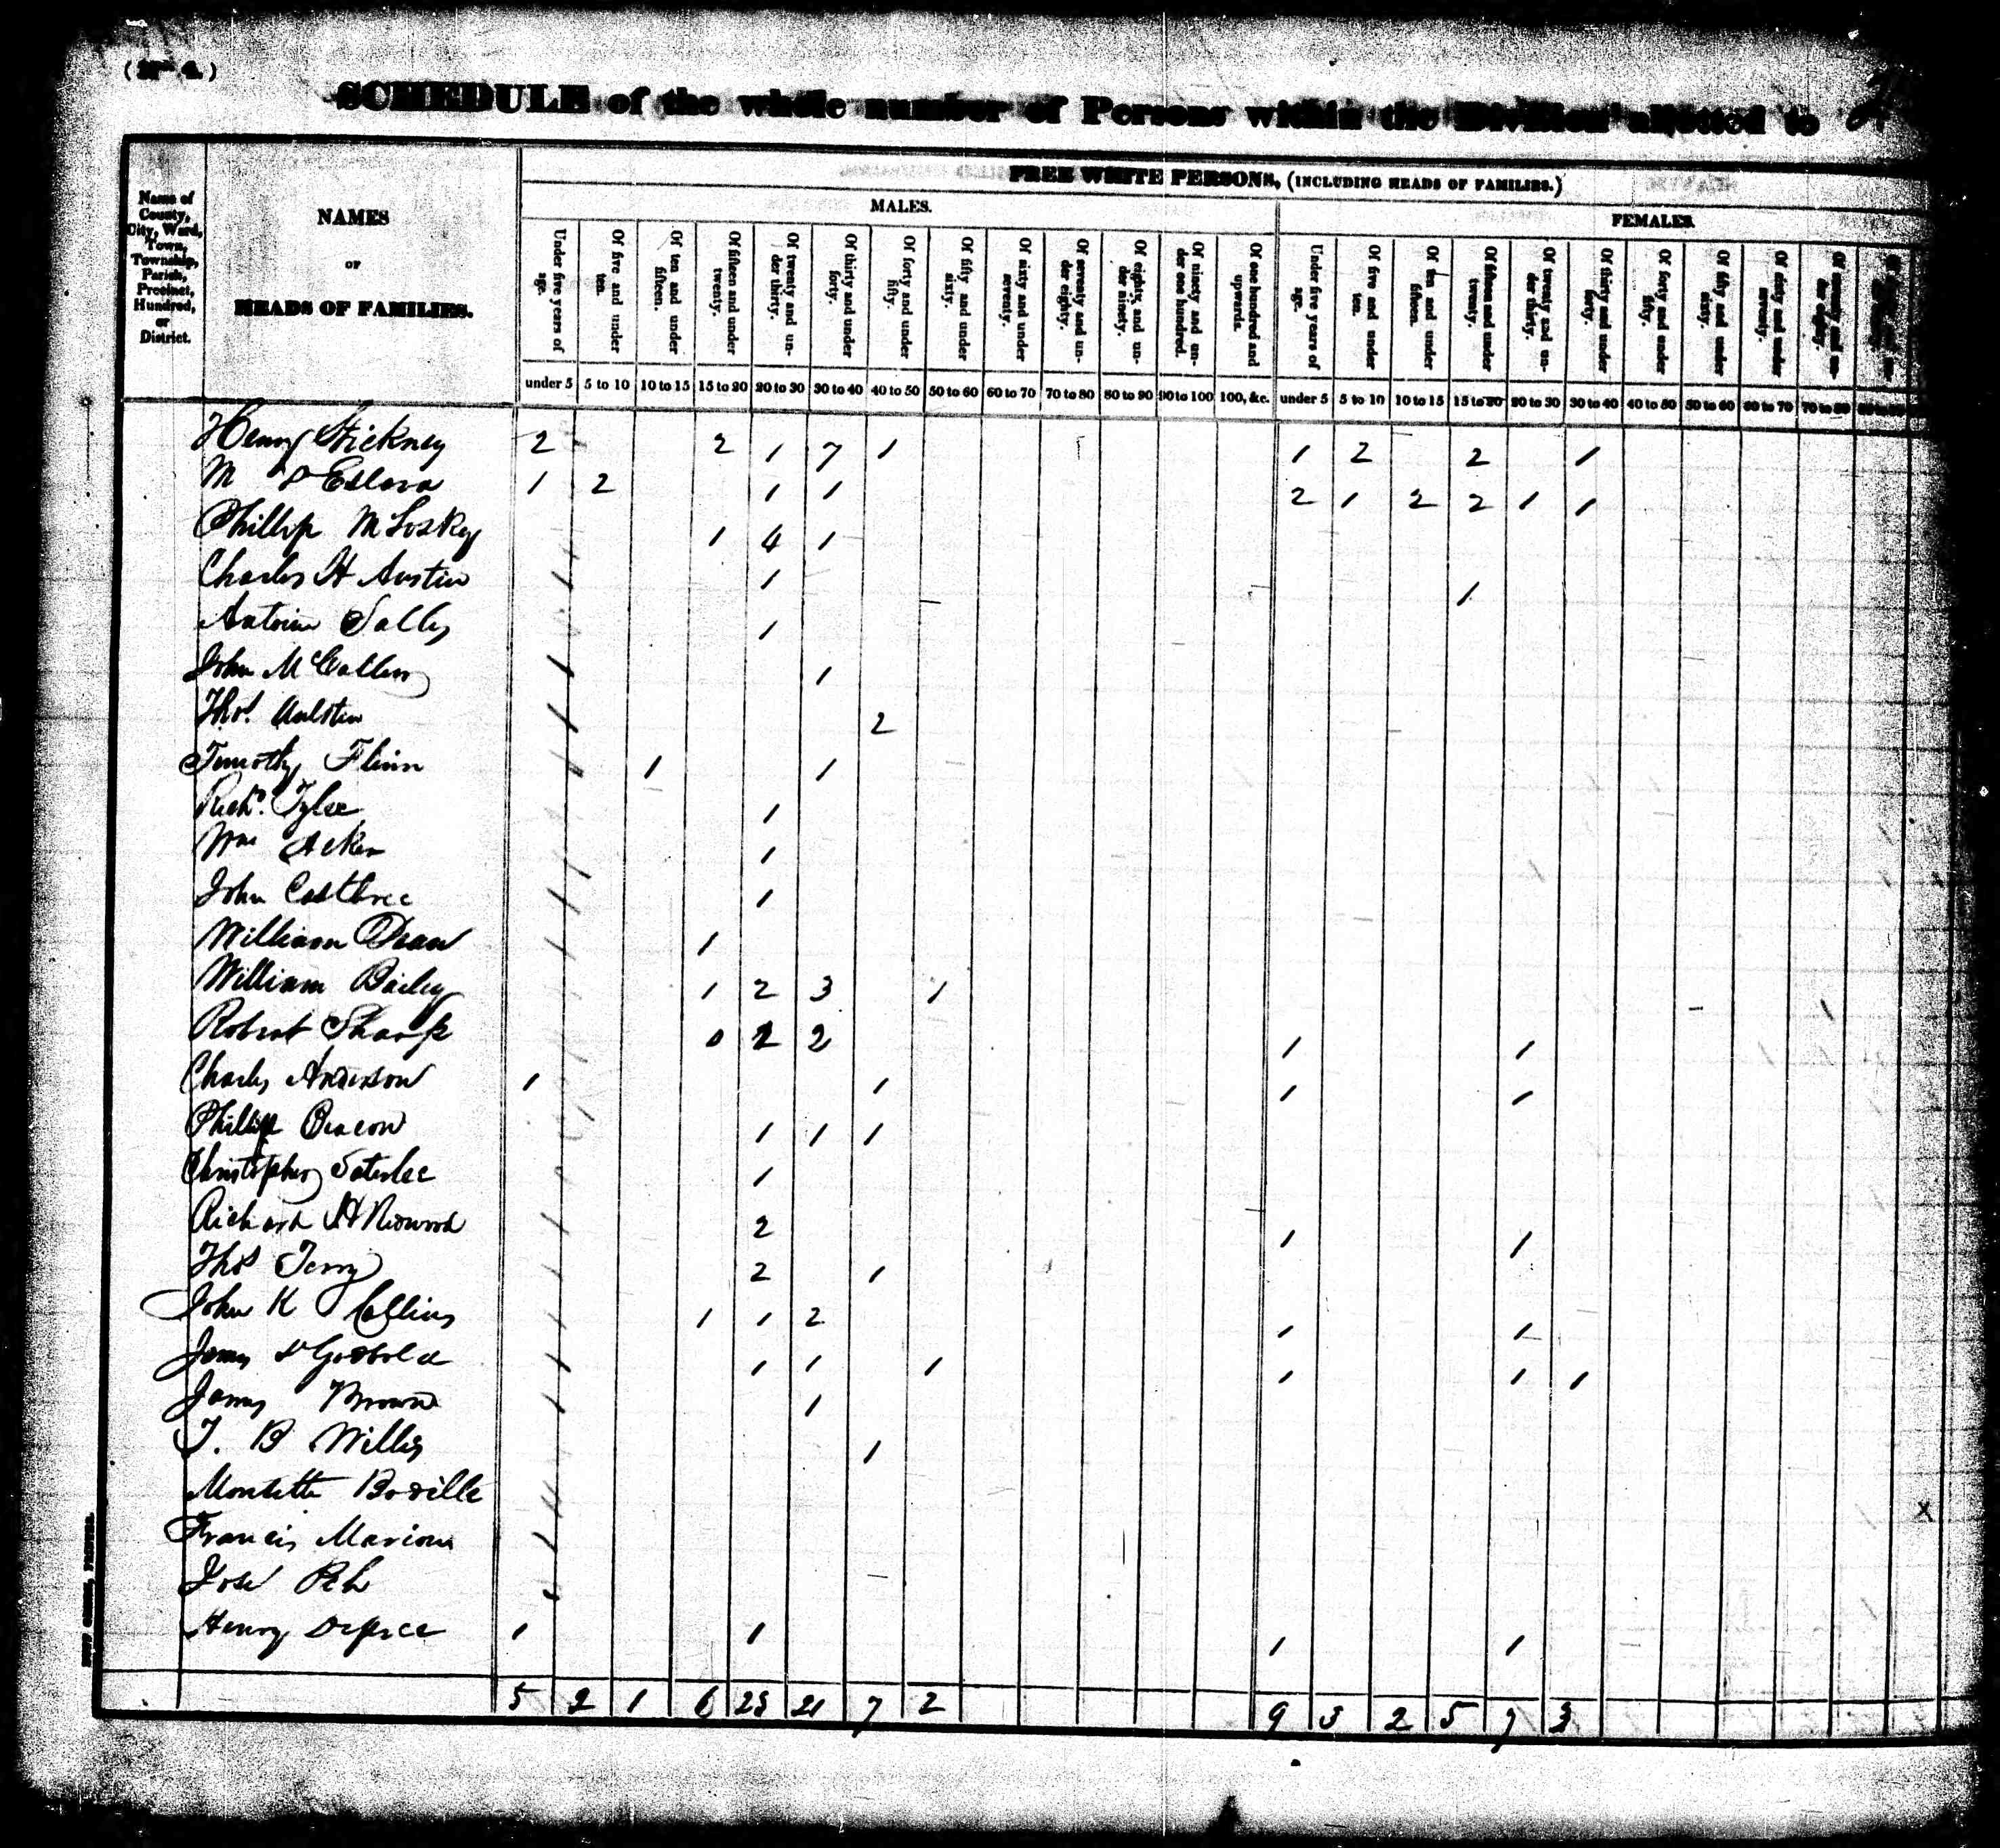 (No 4.)
SCHEDULE of the whole number of Persons within the Division allotted to
Name of County, City, Ward, Town, Township, Parish, Precinct, Hundred, or District.
NAMES
OF
HEADS OF FAMILIES.
FREE WHITE PERSONS, (INCLUDING HEADS OF FAMILIES.)
MALES. FEMALES.
Under five years of age. Of five and under ten. Of ten and under fifteen. Of fifteen and under twenty. Of twenty and under thirty. Of thirty and under forty. Of forty and under fifty. Of fifty and under sixty. Of sixty and under seventy. Of seventy and under eighty. Of eighty and under ninety. Of ninety and under one hundred. Of one hundred and upwards. Under five years of age. Of five and under ten. Of ten and under fifteen. Of fifteen and under twenty. Of twenty and under thirty. Of thirty and under forty. Of forty and under fifty. Of fifty and under sixty. Of sixty and under seventy. Of seventy and under eighty.
under 5 5 to 10 10 to 15 15 to 20 20 to 30 30 to 40 40 to 50 50 to 60 60 to 70 70 to 80 80 to 90 90 to 100 100, &c. under 5 5 to 10 10 to 15 15 to 20 20 to 30 30 to 40 40 to 50 50 to 60 60 to 70 70 to 80
Henry Stickney 2 2 1 7 1 1 2 2 1
M D Eslava 1 2 1 1 2 1 2 2 1 1
Phillip McLoskey 1 4 1
Charles H Austin 1 1
Antoine Salles 1
John McCallen 1
Thos. 2
Timothy Flinn 1 1
Richd. Tylee 1
Wm Acker 1
John 1
William Dean 1
William Bailey 1 2 3 1
Robert Sharp 2 2 1 1
Charles Anderson 1 1 1 1
Phillip Deacon 1 1 1
Christopher Saterlee 1
Richard H 2 1 1
Thos Terry 2 1
John K Collins 1 1 2 1 1
James D Godbold 1 1 1 1 1 1
James Brown 1
T. B Willis 1
Boville X
Francis Marion
Jose
Henry 1 1 1 1
5 2 1 6 25 21 7 2 9 3 2 5 7 3